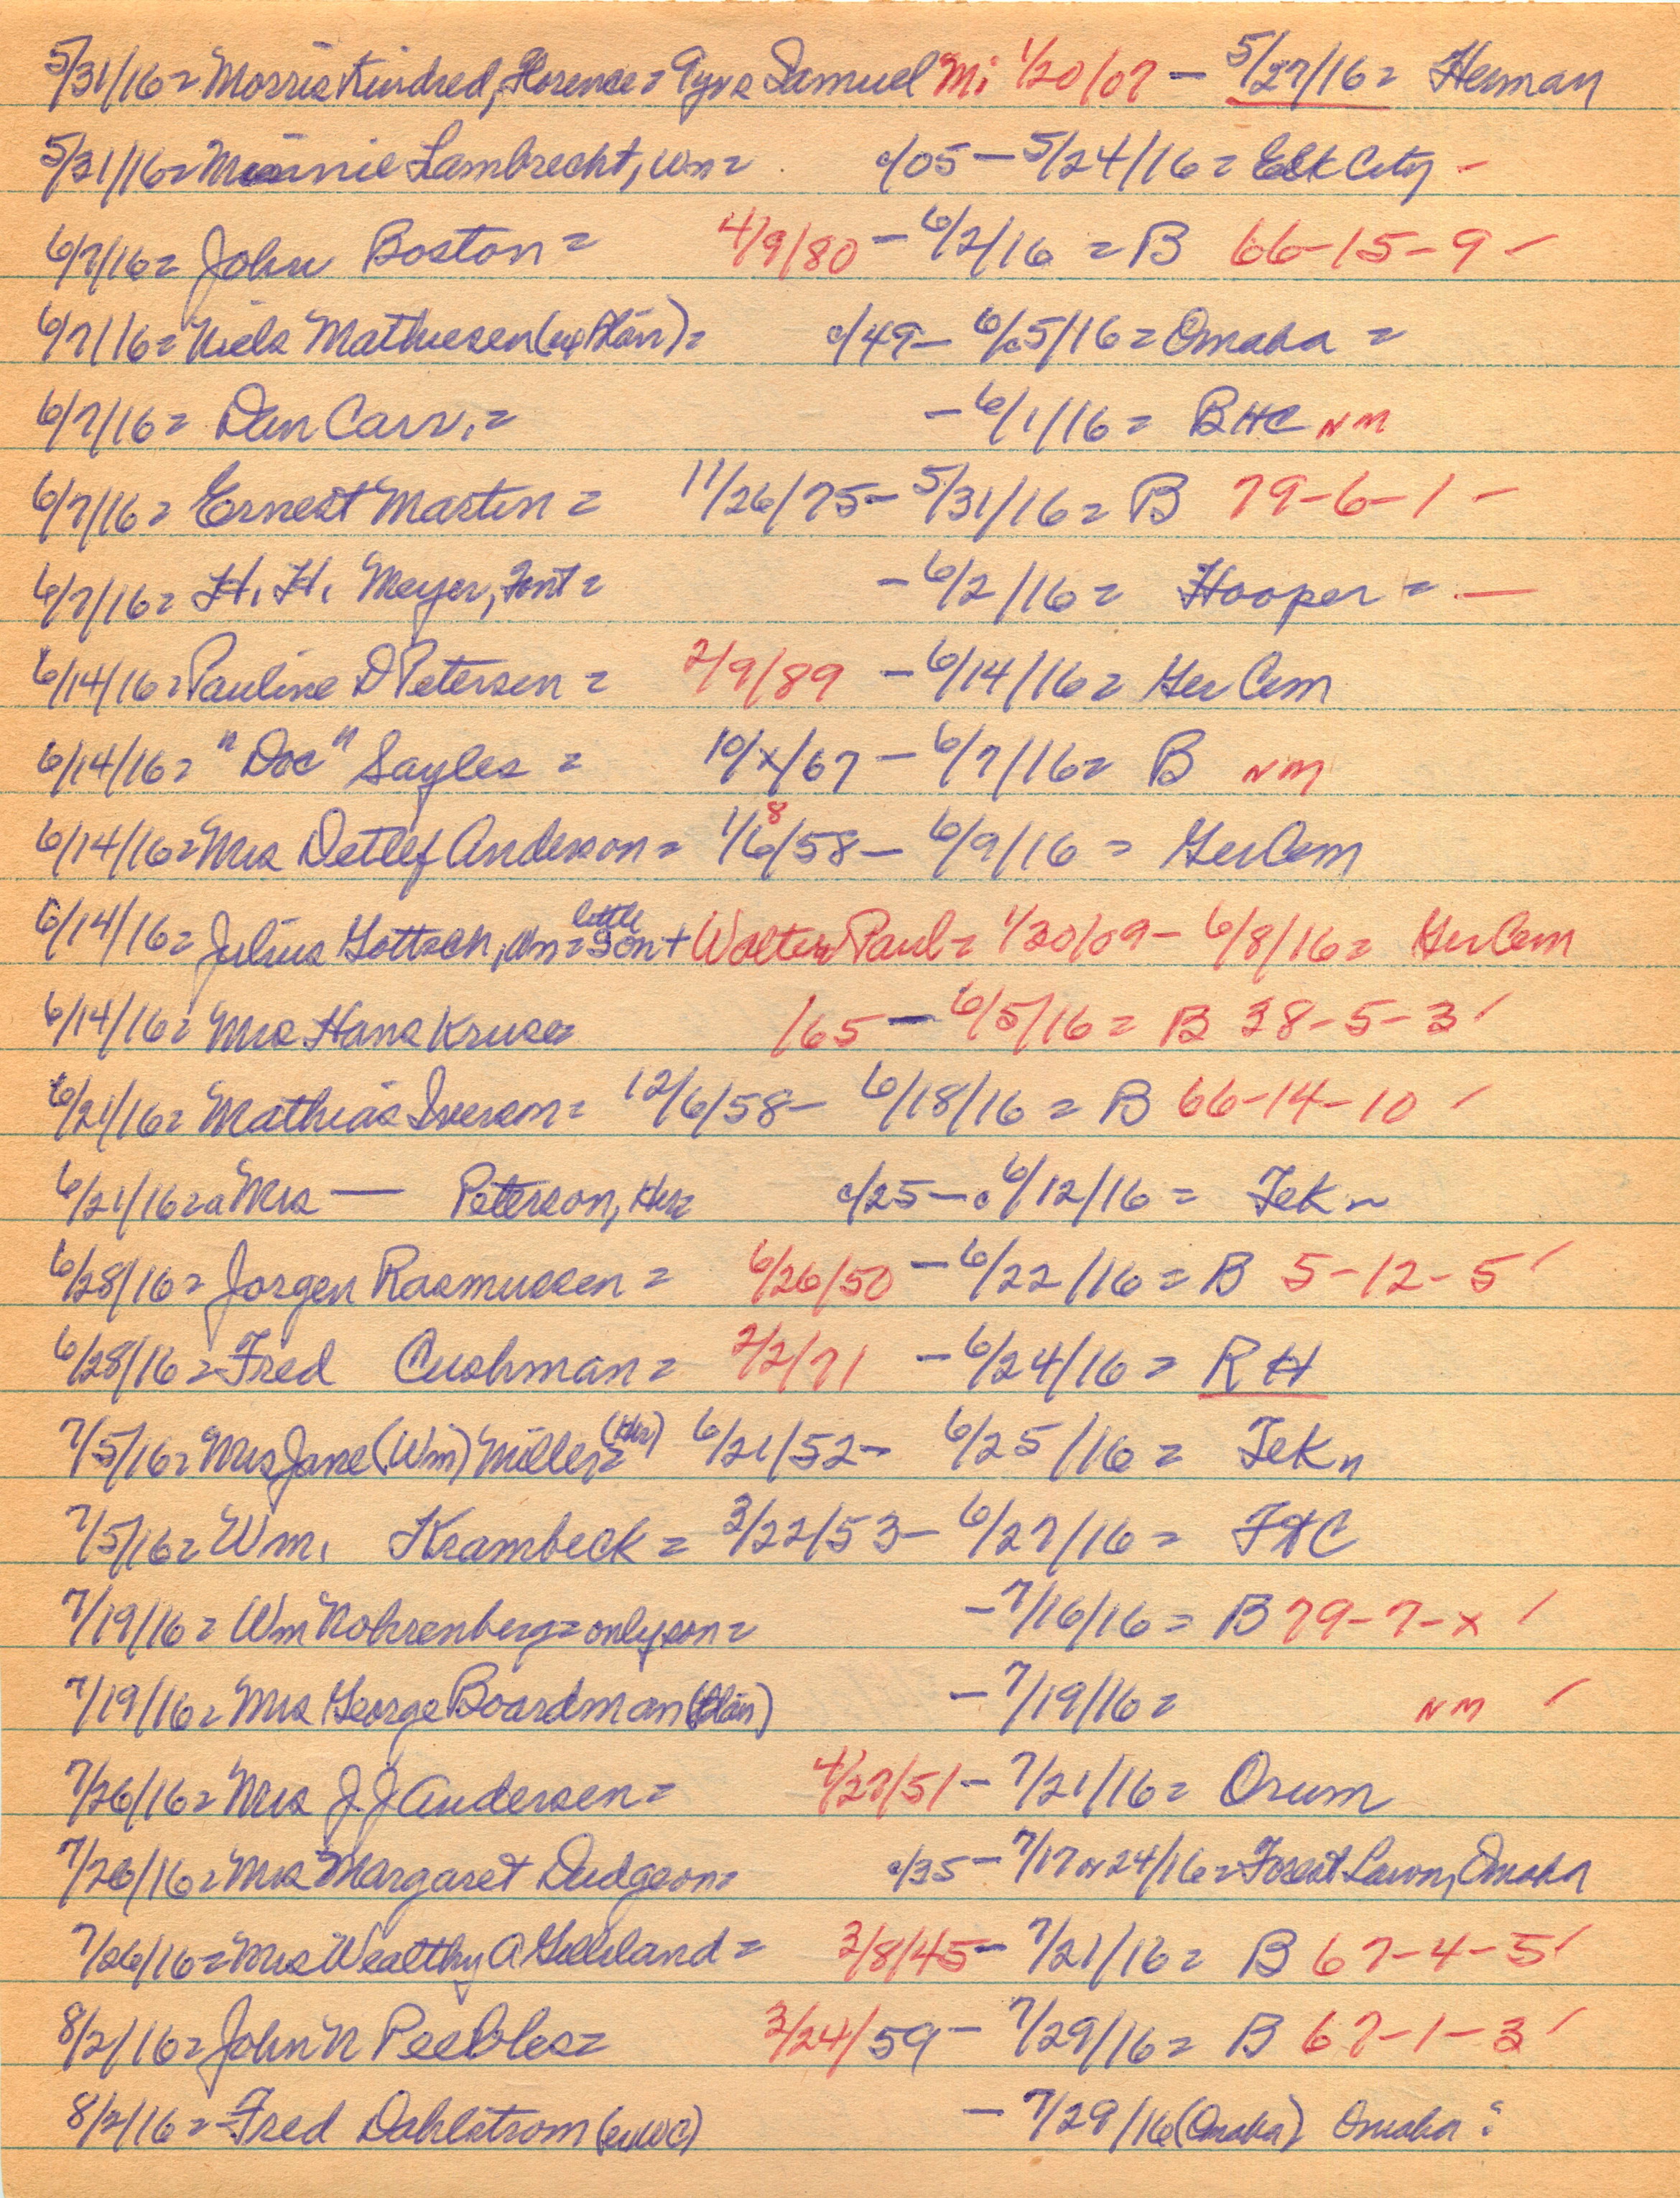 5/31/16= Morris Kindred, Florence = 9yrs Samuel Mi 1/20/07 — 5/27/16= Herman
5/31/16= Minnie Lambrecht, Wm= c/05 — 5/24/16= Elk City -
6/7/16= John Boston = 4/9/80 — 6/2/16 = B 66-15-9 -
6/7/16= Niels Mathiesen (exBlair)= c/49— 6/5/16= Omaha =
6/7/16= Dan Carr. = — 6/1/16= BHC NM
6/7/16= Ernest Martin = 11/26/75— 5/31/16= B 79-6-1 -
6/7/16= H. H. Meyer, Font= — 6/2/16= Hooper = —
6/14/16= Pauline D Petersen = 2/9/89 — 6/14/16= Ger Cem
6/14/16= "Doc" Sayles = 10/x/67 — 6/7/16= B NM
6/14/16= Mrs Detlef Anderson = 1/6/58— 6/9/16 = Ger Cem
8
6/14/16= Julius Gottsch, Wm= little Son + Walter Paul = 1/30/09— 6/8/16= Ger Cem
6/14/16= Mrs Hans Kruse= /65 — 6/5/16= B 38-5-3 /
6/21/16= Mathias Iversen= 12/6/58— 6/18/16 = B 66-14-10 /
6/21/16= a Mrs — Peterson, Her= c/25—c 6/12/16= Tek n
6/28/16= Jorgen Rasmussen = 6/26/50 — 6/22/16= B 5-12-5 /
6/28/16= Fred Cushman = 2/2/71 — 6/24/16= RH
7/5/16= Mrs Jane (Wm) Miller= (Her) 6/21/52— 6/25/16= Tek n
7/5/16= Wm. Krambeck = 3/22/53— 6/27/16= FtC
7/19/16= Wm Rohrenberg= only son= — 7/16/16= B 79-7-x /
7/19/16= Mrs George Boardman (Blair) — 7/19/16= NM /
7/26/16= Mrs J. J Andersen= 4/27/51— 7/21/16= Orum
7/26/16= Mrs Margaret Dudgeon= c/35— 7/17 or 24/16= Forest Lawn, Omaha
7/26/16= Mrs Wealthy A Gilliland = 3/8/45— 7/21/16= B 67-4-5 /
8/2/16= John N Peebles= 3/24/59— 7/29/16= B 67-1-3 /
8/2/16= Fred Dahlstrom (exWC) — 7/29/16 (Omaha) Omaha ?